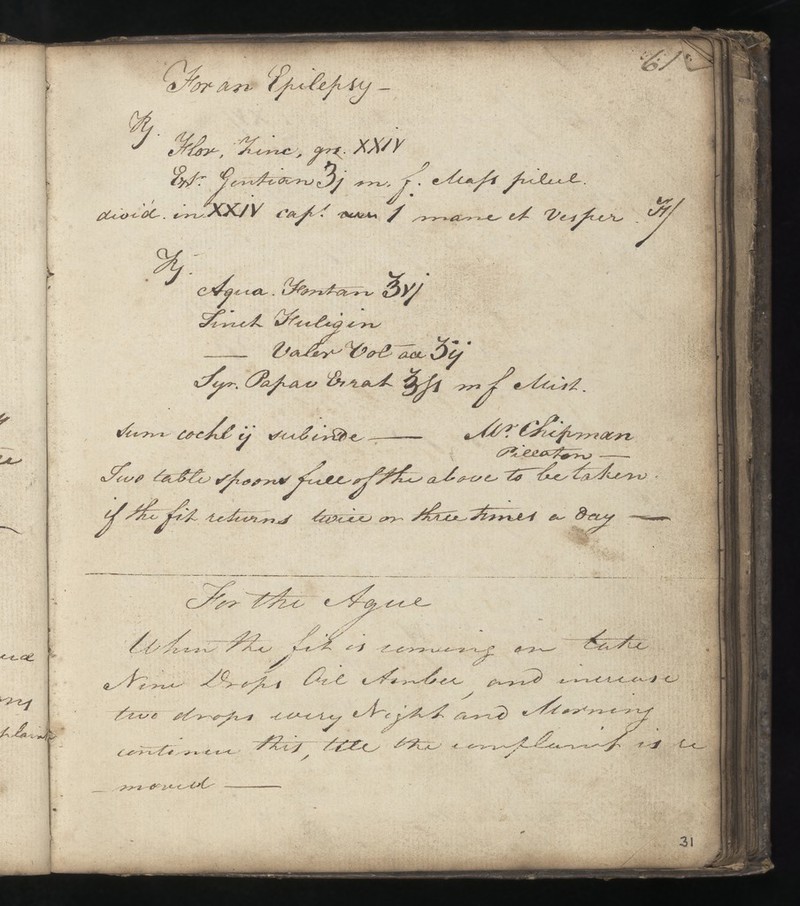 61
For an Epilepsy -
Rj.
Flor. Zinc. grs. XXIV
Ext. Gentian ʒj m. f. Mass pilul.
divid. in XXIV capt. 1 mane et Vesper
Rj.
Aqua. Fontan ℥vj
Tinct Fuligin
— Valer Vol aa ʒij
Syr. Papav Errat ℥ss m f Mist.
sum cochl ij subinde — Mr. Chipman
Pillaton —
Two table spoons full of the above to be taken
if the fit returns twice or three times a day —
For the Ague
When the fit is coming on take
Nine Drops Oil Amber, and increase
two drops every Night and Morning
continue this, till the complaint is re
- moved —
31